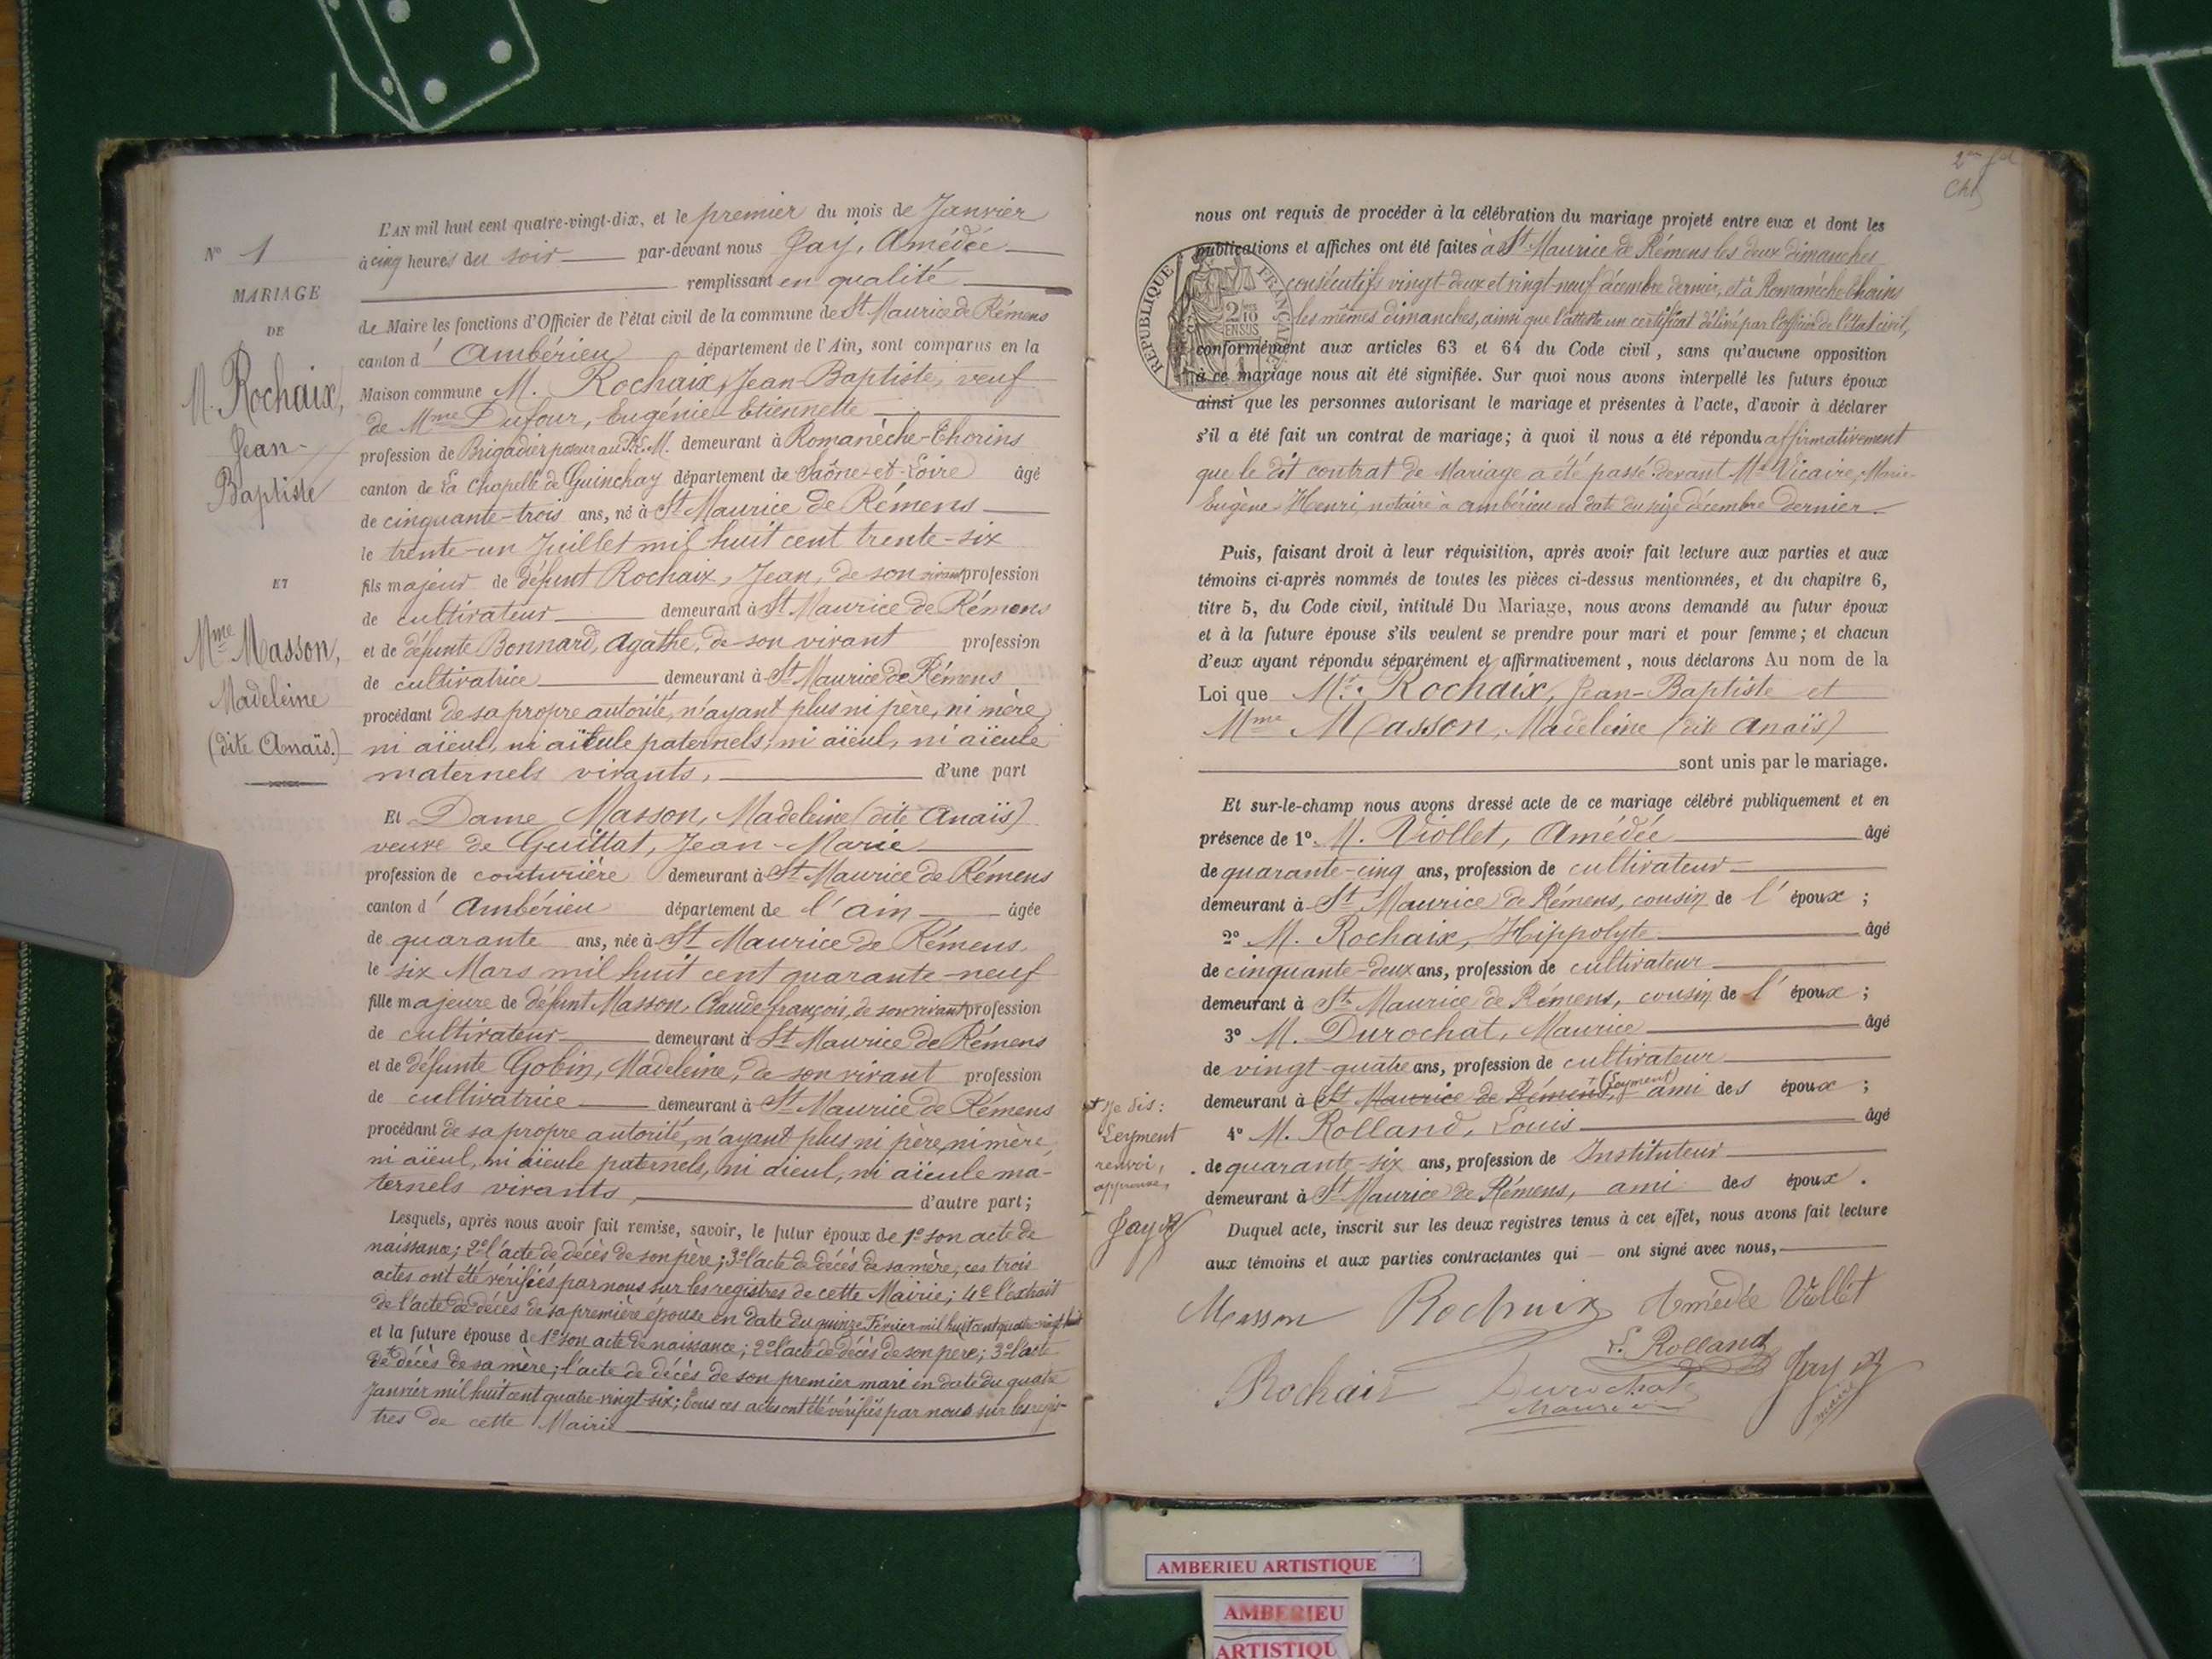 N° 1
MARIAGE
DE
M. Rochaix,
Jean-
Baptiste
ET
Mme Masson,
Madeleine
(dite Anaïs.)
L'AN mil huit cent quatre-vingt-dix, et le premier du mois de Janvier
à cinq heures du soir par-devant nous Jay, Amédée
remplissant en qualité
de Maire les fonctions d'Officier de l'état civil de la commune de St Maurice de Rémens
canton d' Ambérieu département de l'Ain, sont comparus en la
Maison commune M. Rochaix, Jean-Baptiste, veuf
de Mme Dufour, Eugénie-Etiennette
profession de Brigadier poseur au P.L.M. demeurant à Romanèche-Thorins
canton de La Chapelle de Guinchay département de Saône-et-Loire âgé
de cinquante-trois ans, né à St Maurice de Rémens
le trente-un Juillet mil huit cent trente-six
fils majeur de défunt Rochaix, Jean, de son vivant profession
de cultivateur demeurant à St Maurice de Rémens
et de défunte Bonnard, Agathe, de son vivant profession
de cultivatrice demeurant à St Maurice de Rémens
procédant de sa propre autorité, n'ayant plus ni père, ni mère,
ni aïeul, ni aïeule paternels, ni aïeul, ni aïeule
maternels vivants, d'une part
Et Dame Masson, Madeleine (dite Anaïs)
veuve de Guittat, Jean-Marie
profession de couturière demeurant à St Maurice de Rémens
canton d' Ambérieu département de l'Ain âgée
de quarante ans, née à St Maurice de Rémens
le six Mars mil huit cent quarante-neuf
fille majeure de défunt Masson, Claude françois, de son vivant profession
de cultivateur demeurant à St Maurice de Rémens
et de défunte Gobin, Madeleine, de son vivant profession
de cultivatrice demeurant à St Maurice de Rémens
procédant de sa propre autorité, n'ayant plus ni père, ni mère,
ni aïeul, ni aïeule paternels, ni aïeul, ni aïeule ma-
ternels vivants, d'autre part;
Lesquels, après nous avoir fait remise, savoir, le futur époux de 1° son acte de
naissance; 2° l'acte de décès de son père; 3° l'acte de décès de sa mère, ces trois
actes ont été vérifiés par nous sur les registres de cette Mairie; 4° l'extrait
de l'acte de décès de sa première épouse en date du quinze Février mil huit cent quatre-vingt-huit
et la future épouse de 1° son acte de naissance; 2° l'acte de décès de son père; 3° l'acte
de décès de sa mère; l'acte de décès de son premier mari en date du quatre
Janvier mil huit cent quatre-vingt-six; tous ces actes ont été vérifiés par nous sur les regis-
tres de cette Mairie
nous ont requis de procéder à la célébration du mariage projeté entre eux et dont les
publications et affiches ont été faites à St Maurice de Rémens les deux dimanches
consécutifs vingt-deux et vingt-neuf décembre dernier, et à Romanèche Thorins
les mêmes dimanches, ainsi que l'atteste un certificat délivré par l'officier de l'état civil,
conformément aux articles 63 et 64 du Code civil, sans qu'aucune opposition
à ce mariage nous ait été signifiée. Sur quoi nous avons interpellé les futurs époux
ainsi que les personnes autorisant le mariage et présentes à l'acte, d'avoir à déclarer
s'il a été fait un contrat de mariage; à quoi il nous a été répondu affirmativement
que le dit contrat de Mariage a été passé devant Me Vicaire, Marie-
Eugène-Henri, notaire à Ambérieu en date du seize décembre dernier.
RÉPUBLIQUE FRANÇAISE
2/10 EN SUS
Puis, faisant droit à leur réquisition, après avoir fait lecture aux parties et aux
témoins ci-après nommés de toutes les pièces ci-dessus mentionnées, et du chapitre 6,
titre 5, du Code civil, intitulé Du Mariage, nous avons demandé au futur époux
et à la future épouse s'ils veulent se prendre pour mari et pour femme; et chacun
d'eux ayant répondu séparément et affirmativement, nous déclarons Au nom de la
Loi que Mr. Rochaix, Jean-Baptiste et
Mme Masson, Madeleine (dite Anaïs)
sont unis par le mariage.
Et sur-le-champ nous avons dressé acte de ce mariage célébré publiquement et en
présence de 1°. M. Viollet, Amédée âgé
de quarante-cinq ans, profession de cultivateur
demeurant à St Maurice de Rémens, cousin de l' époux;
2° M. Rochaix, Hippolyte âgé
de cinquante-deux ans, profession de cultivateur
demeurant à St Maurice de Rémens, cousin de l' époux;
3° M. Durochat, Maurice âgé
de vingt-quatre ans, profession de cultivateur
demeurant à St Maurice de Rémens, (Leyment) ami des époux;
4° M. Rolland, Louis âgé
de quarante-six ans, profession de Instituteur
demeurant à St Maurice de Rémens, ami des époux.
Duquel acte, inscrit sur les deux registres tenus à cet effet, nous avons fait lecture
aux témoins et aux parties contractantes qui ont signé avec nous,
+ Je dis:
Leyment
renvoi,
approuvé,
Jay
Masson Rochaix Amédée Viollet
L. Rolland
Rochaix Durochat Jay
Maurice maire
AMBERIEU ARTISTIQUE
AMBERIEU
ARTISTIQU